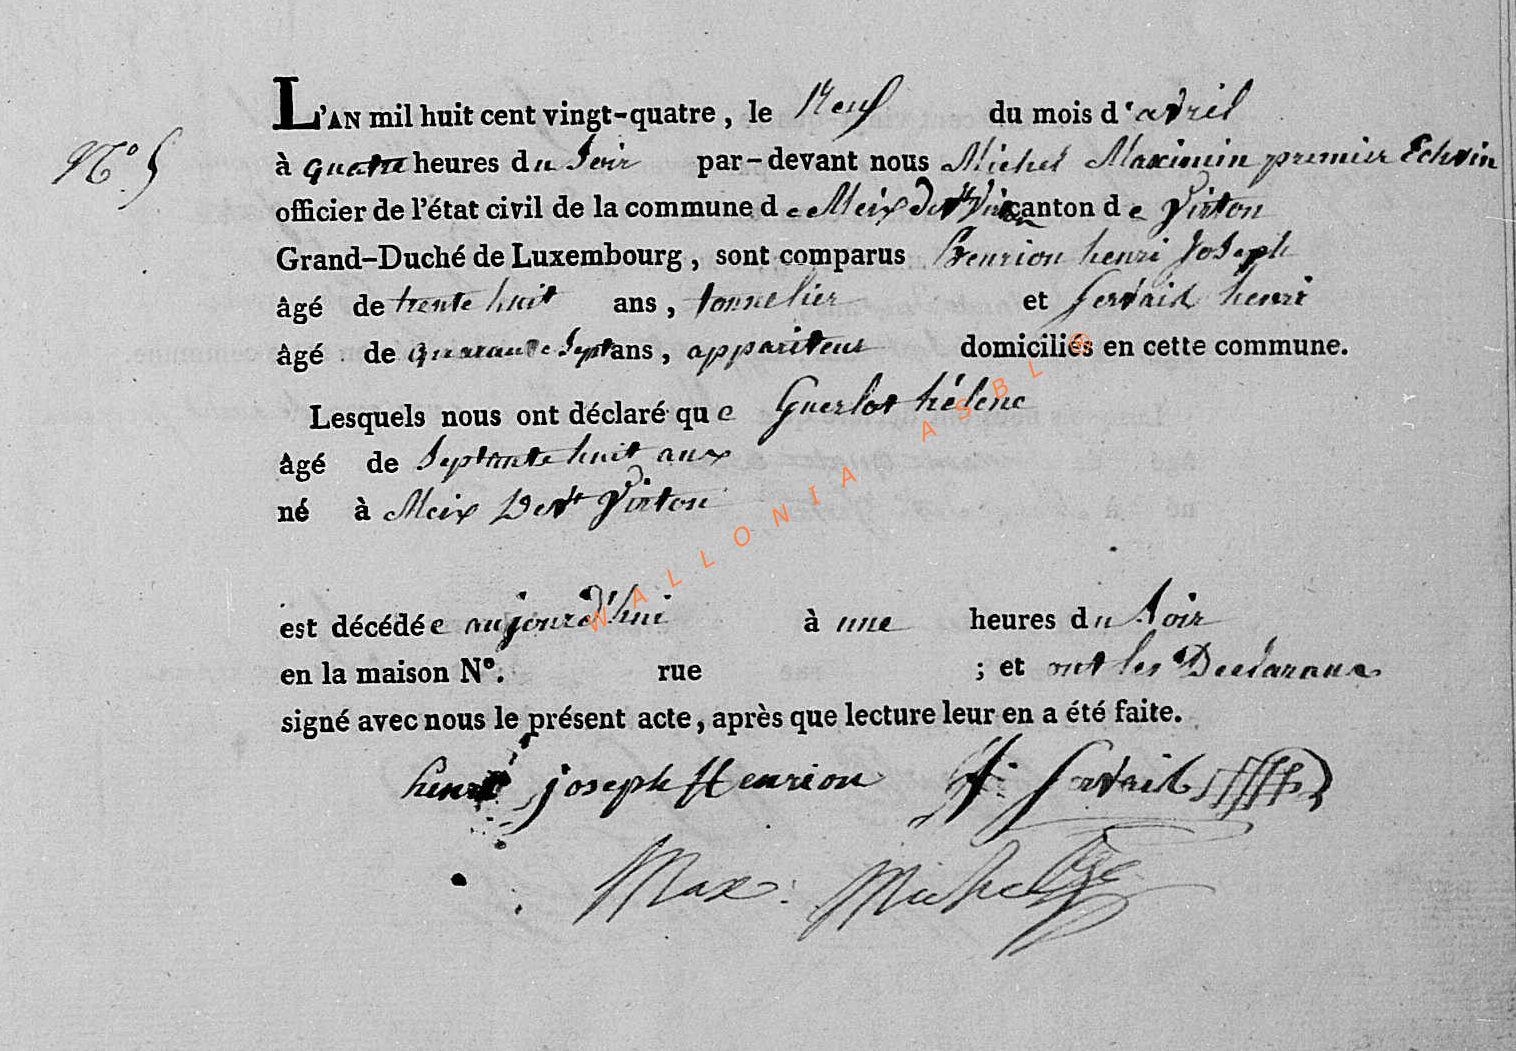 L'AN mil huit cent vingt-quatre, le Neuf du mois d'avril
N° 5
à quatre heures du Soir par-devant nous Michel Maximin premier Echvin
officier de l'état civil de la commune de Meix devt Virton canton de Virton
Grand-Duché de Luxembourg, sont comparus Henrion henri Joseph
âgé de trente huit ans, tonnelier et Servais henri
âgé de quarante Sept ans, appariteur domiciliés en cette commune.
Lesquels nous ont déclaré que Guerlot hélene
âgé de Septante huit ans
né à Meix Devt Virton
est décédée aujourd'hui à une heures du Soir
en la maison N°. rue ; et ont les Declarans
signé avec nous le présent acte, après que lecture leur en a été faite.
henri joseph Henrion h: servais
Max: Michel
WALLONIA ASBL ®